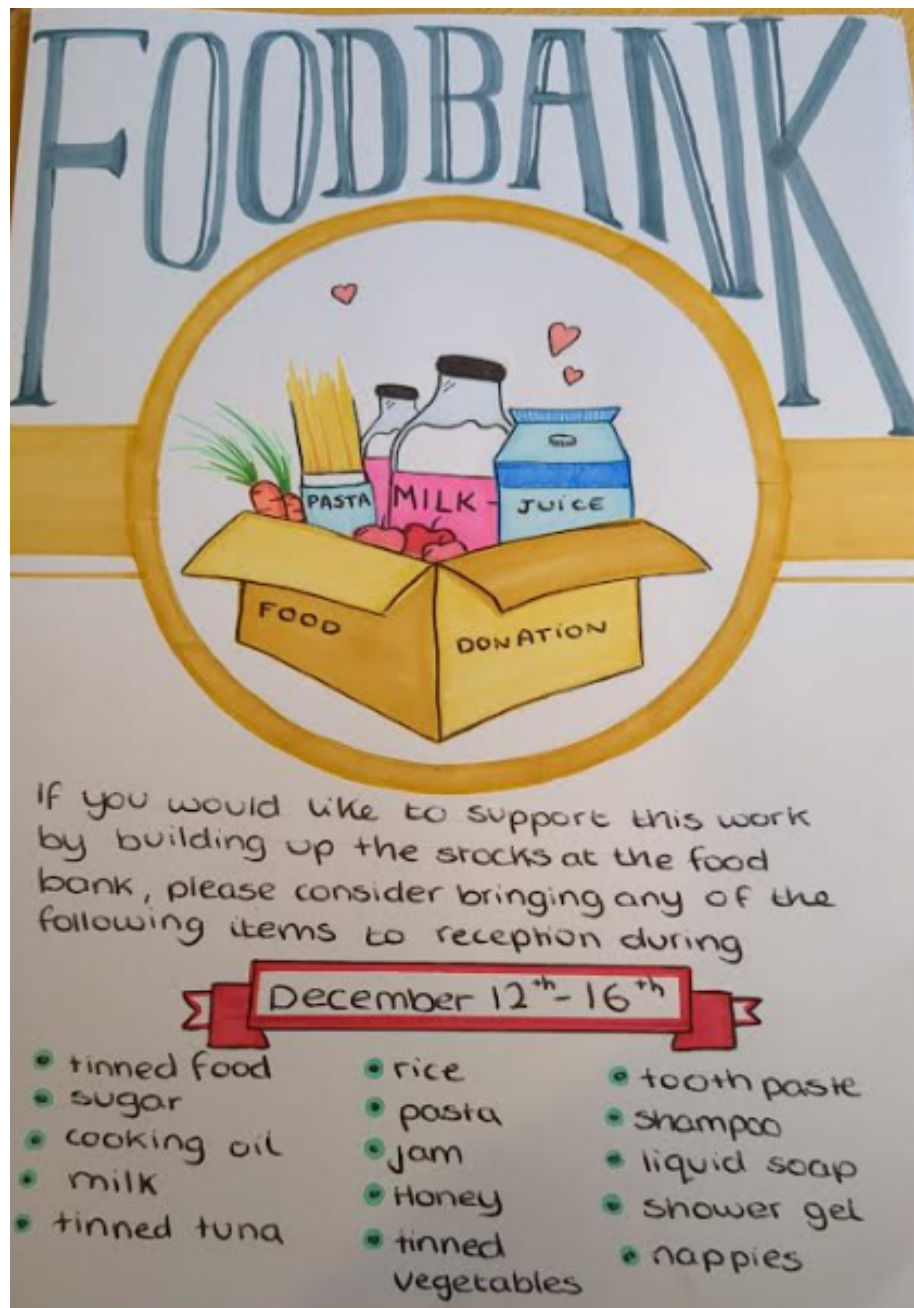 FOODBANK
PASTA
MILK
JUiCE
FOOD
DONATiON
If you would like to support this work
by building up the stocks at the food
bank, please consider bringing any of the
following items to reception during
December 12th - 16th
tinned food
sugar
cooking oil
milk
tinned tuna
rice
pasta
jam
Honey
tinned
vegetables
tooth paste
shampoo
liquid soap
shower gel
nappies